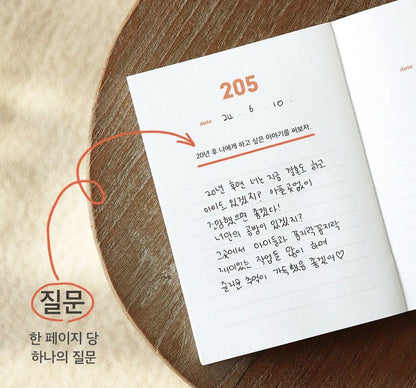 205
date 24 . 6 . 10 .
date
20년 후 나에게 하고 싶은 이야기를 써보자.
20년 후면 너는 지금 결혼도 하고
아이도 있겠지? 아픈곳없이
건강했으면 좋겠다!
너만의 공방이 있겠지?
그곳에서 아이들과 꼼지락꼼지락
재미있는 작업들 많이 하며
즐거운 추억이 가득했음 좋겠어♡
질문
한 페이지 당
하나의 질문